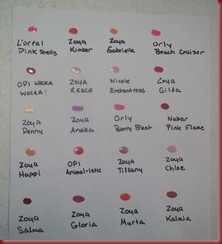 L'oreal
Pink Shells
Zoya
Kimber
Zoya
Gabrielle
Orly
Beach Cruiser
OPI Wocka
Wocka!
Zoya
Reece
Nicole
Enchantress
Zoya
Gilda
Zoya
Penny
Zoya
Anaka
Orly
Berry Blast
Nubar
Pink Flame
Zoya
Happi
OPI
Animal-istic
Zoya
Tiffany
Zoya
Chloe
Zoya
Salma
Zoya
Gloria
Zoya
Myrta
Zoya
Kalmia